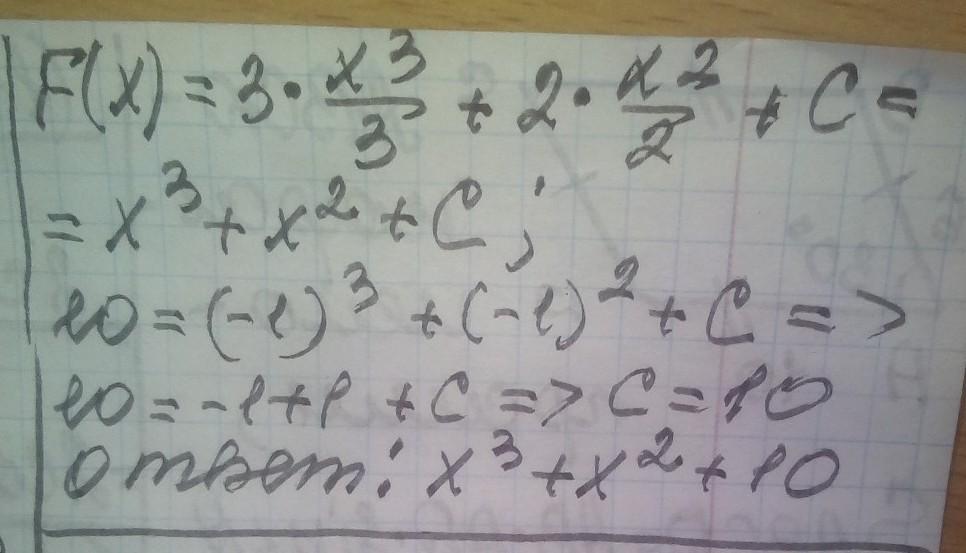 F(x) = 3 · x³/3 + 2 · x²/2 + C =
= x³ + x² + C ;
10 = (-1)³ + (-1)² + C =>
10 = -1+1 + C => C = 10
Ответ: x³ + x² + 10